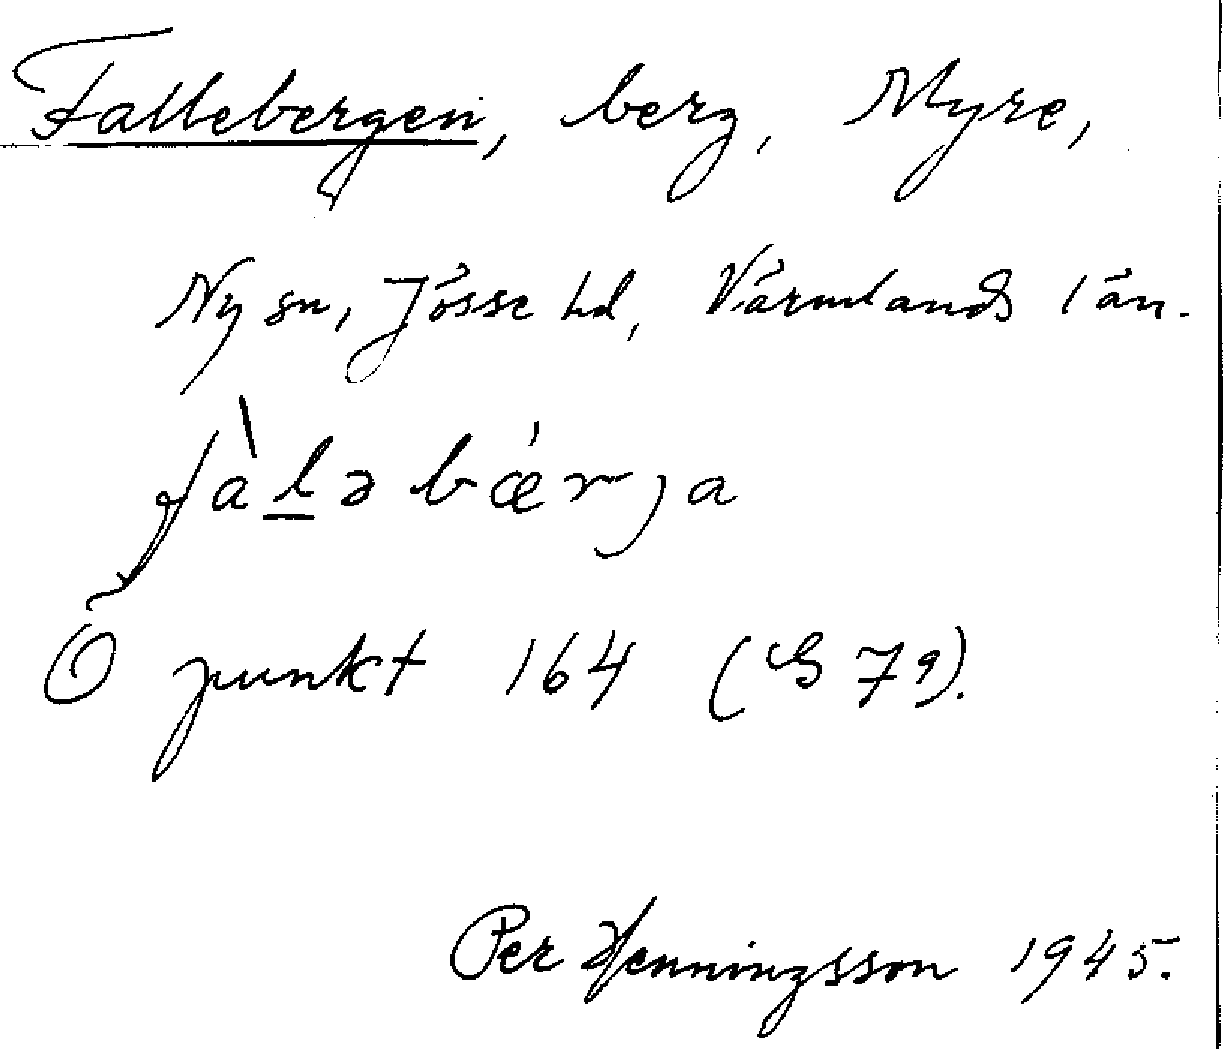 Fallebergen, berg, Myre,
Ny sn, Jösse hd, Värmlands län.
fàl̲əbǽrja
Ö punkt 164 (G 79).
Per Henningsson 1945.